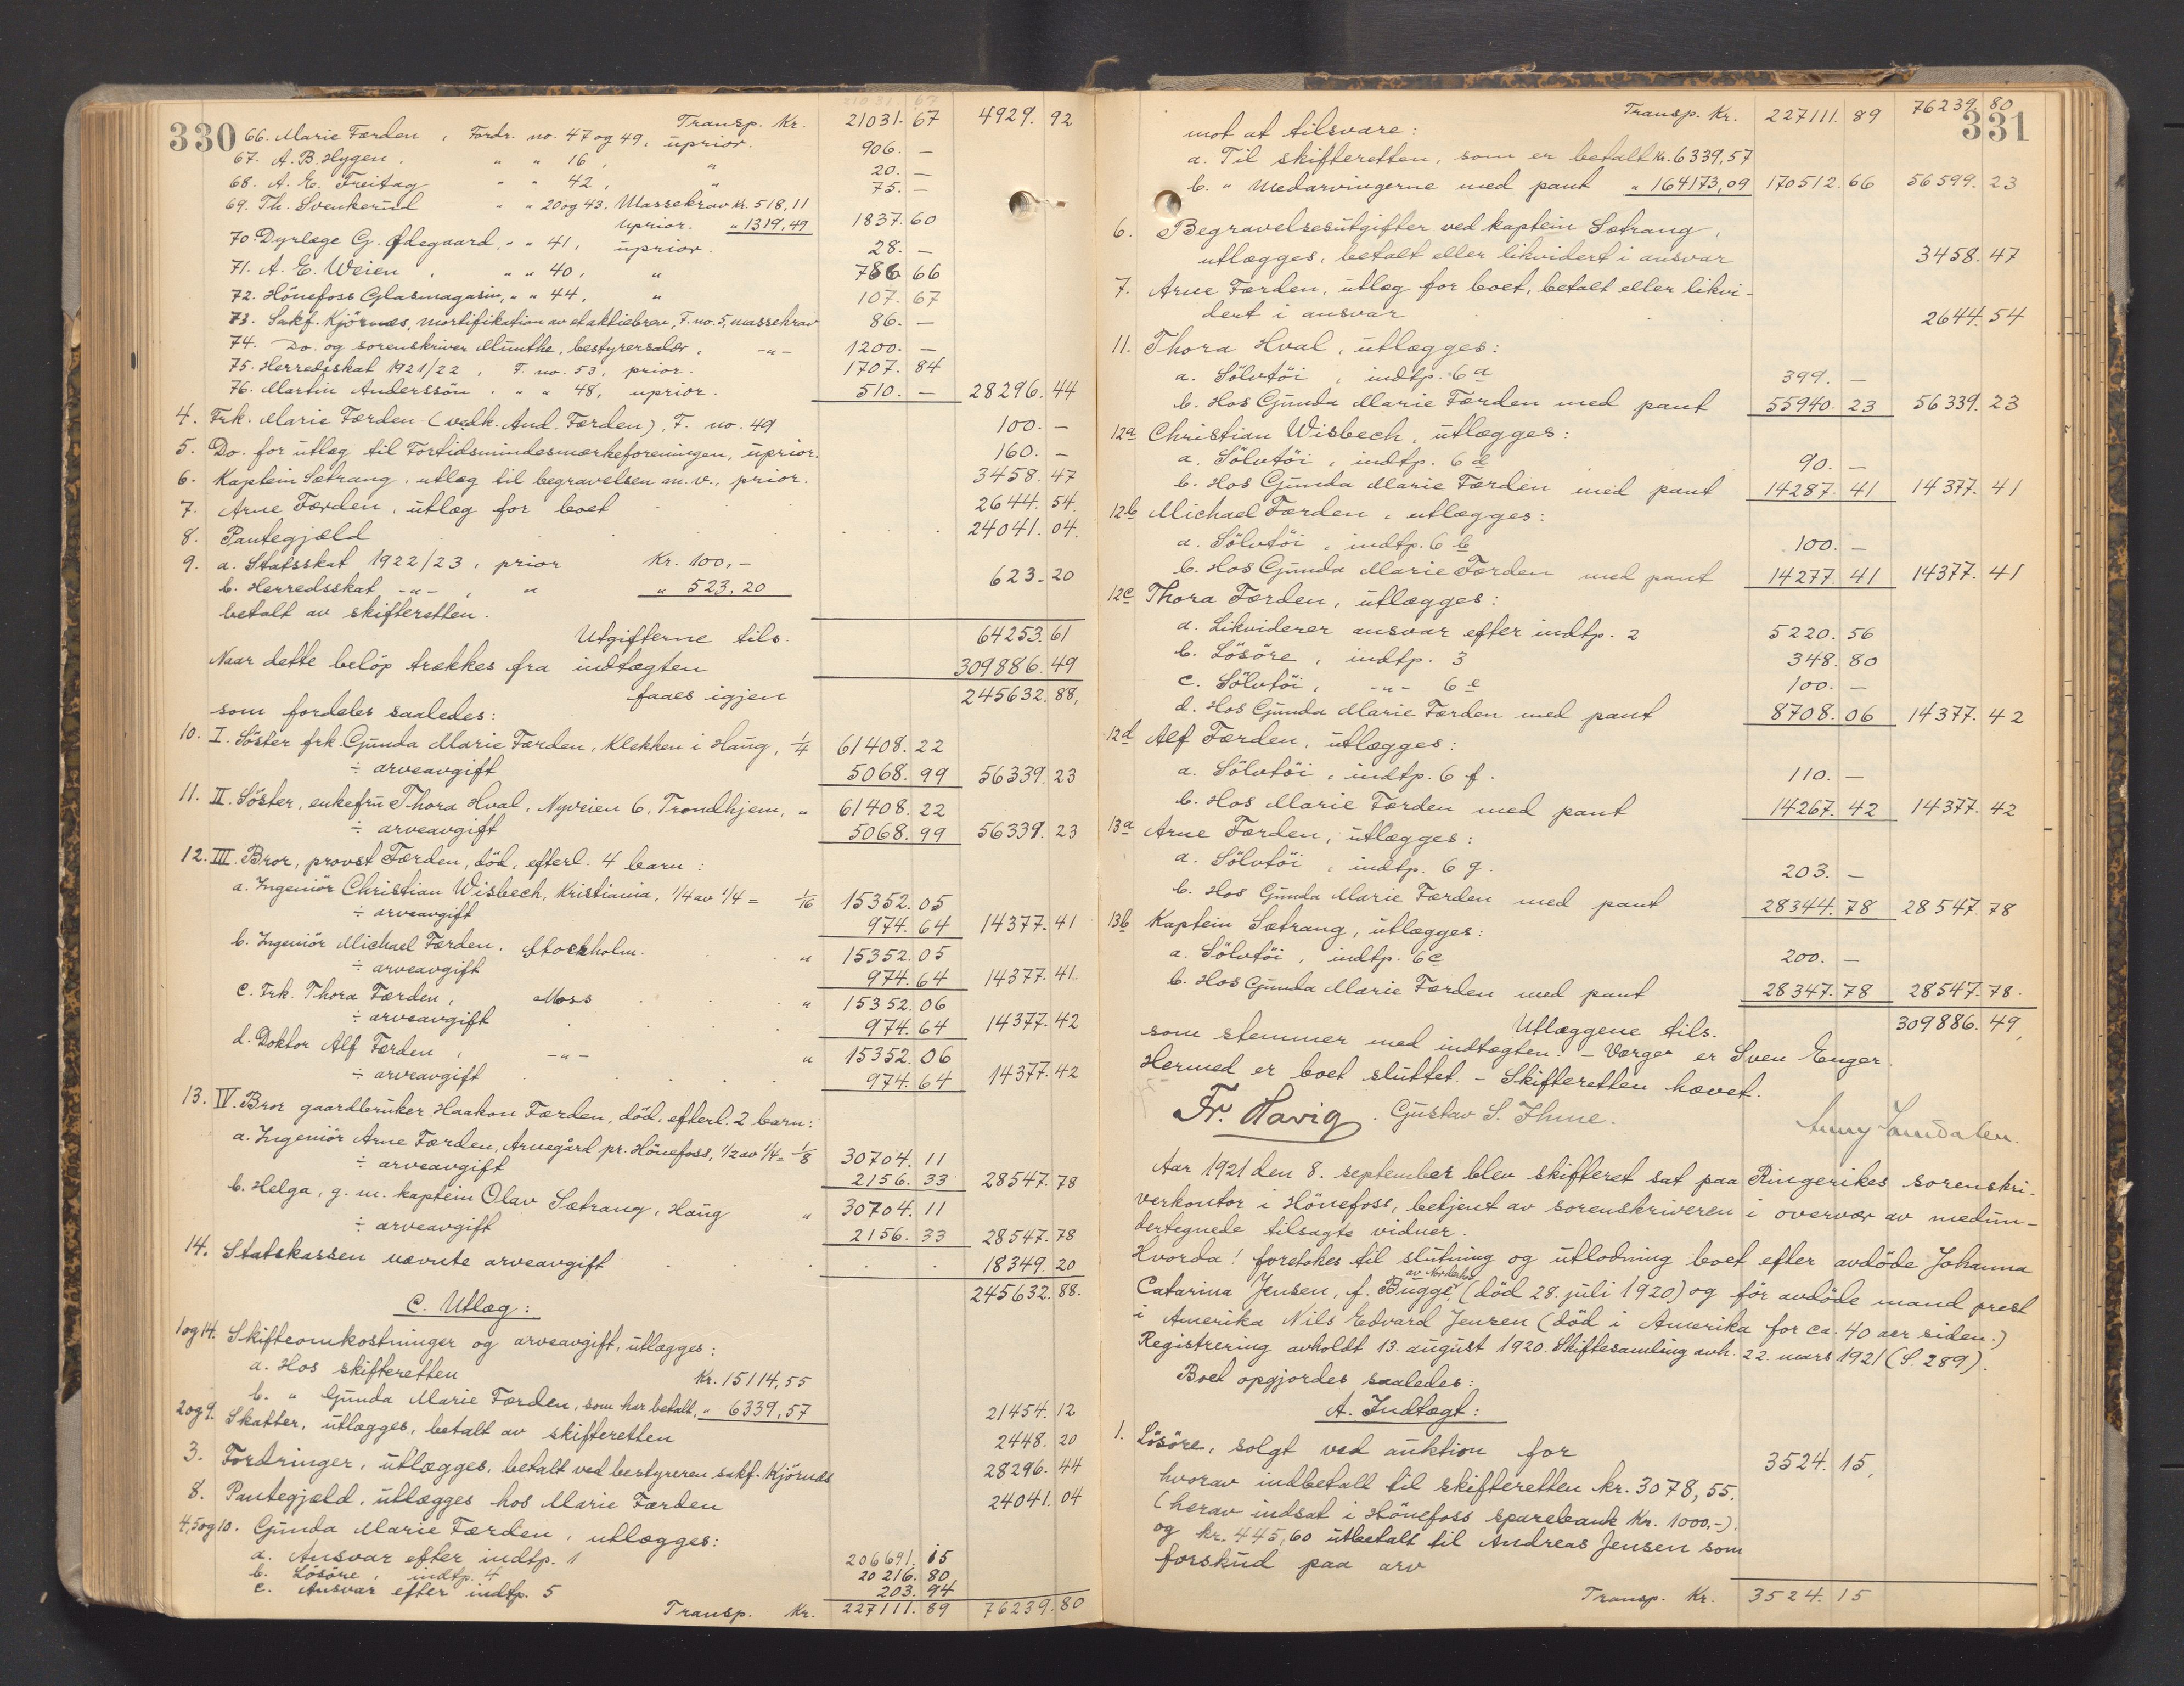 330
Transp. Kr. 21031. 67 4929. 92
66. Marie Færden, Fordr. no. 47 og 49, uprior. 906. —
67. A. B. Hygen, " " 16, " 20. —
68. A. E. Freitag " " 42, " 75. —
69. Th. Svenkerud " " 20 og 43. Massekrav kr. 518,11
uprior. " 1319.49 1837. 60
70. Dyrlæge G. Ødegaard, " " 41, uprior. 28. —
71. A. E. Weien, " " 40, " 786 66
72. Hönefoss Glasmagasin, " " 44, " 107. 67
73. Sakf. Kjörnæs, mortifikation av et aktiebrev, F. no. 5, massekrav 86. —
74. Do. og sorenskriver Munthe, bestyrersalær, -"- 1200. —
75. Herredsskat 1921/22, F. no. 53, prior. 1707. 84
76. Martin Anderssön, " " 48, uprior. 510. — 28296. 44
4. Frk. Marie Færden (vedk. And. Færden), F. no. 49 100. —
5. Do. for utlæg til Fortidsmindesmerkeforeningen, uprior. 160. —
6. Kaptein Sætrang, utlæg til begravelsen m. v., prior. 3458. 47
7. Arne Færden, utlæg for boet 2644. 54
8. Pantegjæld 24041. 04
9. a. Statsskat 1922/23, prior Kr. 100,-
b. Herredsskat -"-, " " 523,20 623. 20
betalt av skifteretten.
Utgifterne tils. 64253. 61
Naar dette belöp trækkes fra indtægten 309886. 49
faaes igjen 245632. 88,
som fordeles saaledes:
10. I. Söster frk. Gunda Marie Færden, Klekken i Haug, 1/4 61408. 22
÷ arveavgift 5068. 99 56339. 23
11. II. Söster, enkefru Thora Hval, Nyveien 6, Trondhjem, " 61408. 22
÷ arveavgift 5068. 99 56339. 23
12. III. Bror, provst Færden, död, efterl. 4 barn:
a. Ingeniör Christian Wisbech, Kristiania, 1/4 av 1/4 = 1/16 15352. 05
÷ arveavgift 974. 64 14377. 41
b. Ingeniör Michael Færden, Stockholm. " 15352. 05
÷ arveavgift 974. 64 14377. 41.
c. Frk. Thora Færden, Moss " 15352. 06
÷ arveavgift 974. 64 14377. 42
d. Doktor Alf Færden, -"- " 15352. 06
÷ arveavgift 974. 64 14377. 42
13. IV. Bror gaardbruker Haakon Færden, död, efterl. 2 barn:
a. Ingeniör Arne Færden, Arnegård pr. Hönefoss, 1/2 av 1/4 = 1/8 30704. 11
÷ arveavgift 2156. 33 28547. 78
b. Helga, g. m. kaptein Olav Sætrang, Haug " 30704. 11
÷ arveavgift 2156. 33 28547. 78
14. Statskassen nævnte arveavgift 18349. 20
245632. 88.
C. Utlæg:
1 og 14. Skifteomkostninger og arveavgift, utlægges:
a. Hos skifteretten Kr. 15114,55
b. " Gunda Marie Færden, som har betalt, " 6339,57 21454. 12
2 og 9. Skatter, utlægges, betalt av skifteretten 2448. 20
3. Fordringer, utlægges, betalt ved bestyreren sakf. Kjörnæs 28296. 44
8. Pantegjæld, utlægges hos Marie Færden 24041. 04
4, 5 og 10. Gunda Marie Færden, utlægges:
a. Ansvar efter indtp. 1 206691. 15
b. Lösöre, indtp. 4 20216. 80
c. Ansvar efter indtp. 5 203. 94
Transp. Kr. 227111. 89 76239. 80
331
Transp. Kr. 227111. 89 76239. 80
mot at tilsvare:
a. Til skifteretten, som er betalt Kr. 6339,57
b. " Medarvingerne med pant " 164173,09 170512. 66 56599. 23
6. Begravelsesutgifter ved kaptein Sætrang,
utlægges, betalt eller likvidert i ansvar 3458. 47
7. Arne Færden, utlæg for boet, betalt eller likvi-
dert i ansvar 2644. 54
11. Thora Hval, utlægges:
a. Sölvtöi, indtp. 6 a 399. —
b. Hos Gunda Marie Færden med pant 55940. 23 56339. 23
12a Christian Wisbech, utlægges:
a. Sölvtöi, indtp. 6 d 90. —
b. Hos Gunda Marie Færden med pant 14287. 41 14377. 41
12b Michael Færden, utlægges:
a. Sölvtöi, indtp. 6 b 100. —
b. Hos Gunda Marie Færden med pant 14277. 41 14377. 41
12c Thora Færden, utlægges:
a. Likviderer ansvar efter indtp. 2 5220. 56
b. Lösöre, indtp. 3 348. 80
c. Sölvtöi, -"- 6 e 100. —
d. Hos Gunda Marie Færden med pant 8708. 06 14377. 42
12d Alf Færden, utlægges:
a. Sölvtöi, indtp. 6 f. 110. —
b. Hos Marie Færden med pant 14267. 42 14377. 42
13a Arne Færden, utlægges:
a. Sölvtöi, indtp. 6 g. 203. —
b. Hos Gunda Marie Færden med pant 28344. 78 28547. 78
13b Kaptein Sætrang, utlægges:
a. Sölvtöi, indtp. 6c 200. —
b. Hos Gunda Marie Færden med pant 28347. 78 28547. 78.
Utlæggene tils. 309886. 49,
som stemmer med indtægten. – Værger er Sven Enger.
Hermed er boet sluttet. – Skifteretten hævet.
Fr. Havig. Gustav S. Ihme.
Aar 1921 den 8. september blev skifteret sat paa Ringerikes sorenskri-
verkontor i Hönefoss, betjent av sorenskriveren i overvær av medun-
dertegnede tilsagte vidner.
Hvorda! foretokes til slutning og utlodning boet efter avdöde Johanna
av Norderhov
Catarina Jensen, f. Bugge, (död 28. juli 1920) og för avdöde mand prest
i Amerika Nils Edvard Jensen (död i Amerika for ca. 40 aar siden.)
Registrering avholdt 13. august 1920. Skiftesamling avh. 22. mars 1921 (S. 289).
Boet opgjordes saaledes:
A. Indtægt:
1. Lösöre, solgt ved auktion for 3524. 15,
hvorav indbetalt til skifteretten kr. 3078,55.
(herav indsat i Hönefoss sparebank Kr. 1000,-).
og kr. 445,60 utbetalt til Andreas Jensen som
forskud paa arv
Transp. Kr. 3524. 15